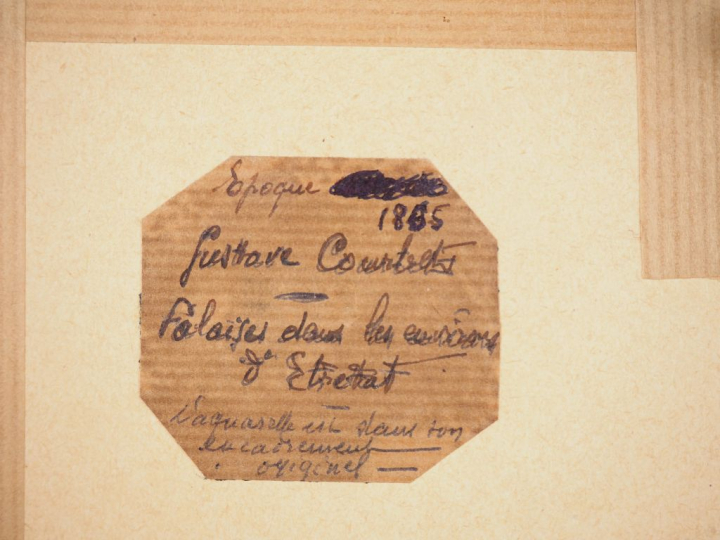 Epoque
1865
Gustave Courbet
Falaises dans les environs
d'Etretat
L'aquarelle est dans son
encadrement
originel